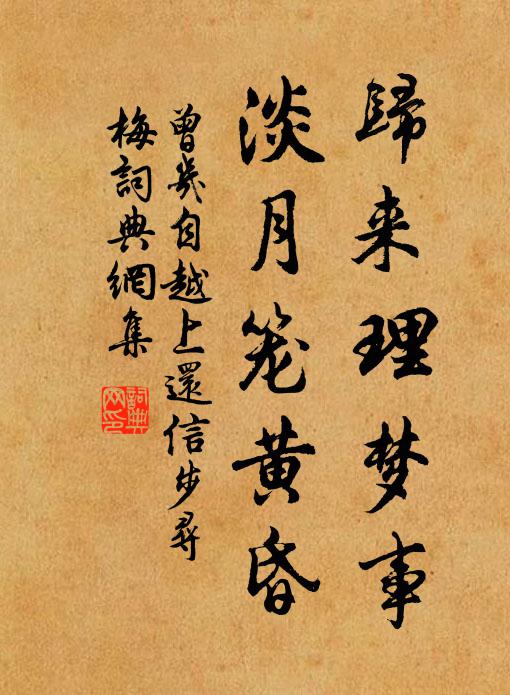 歸来理梦事
淡月笼黄昏
曾幾自越上還信步尋
梅詞典網集
詞典
网印